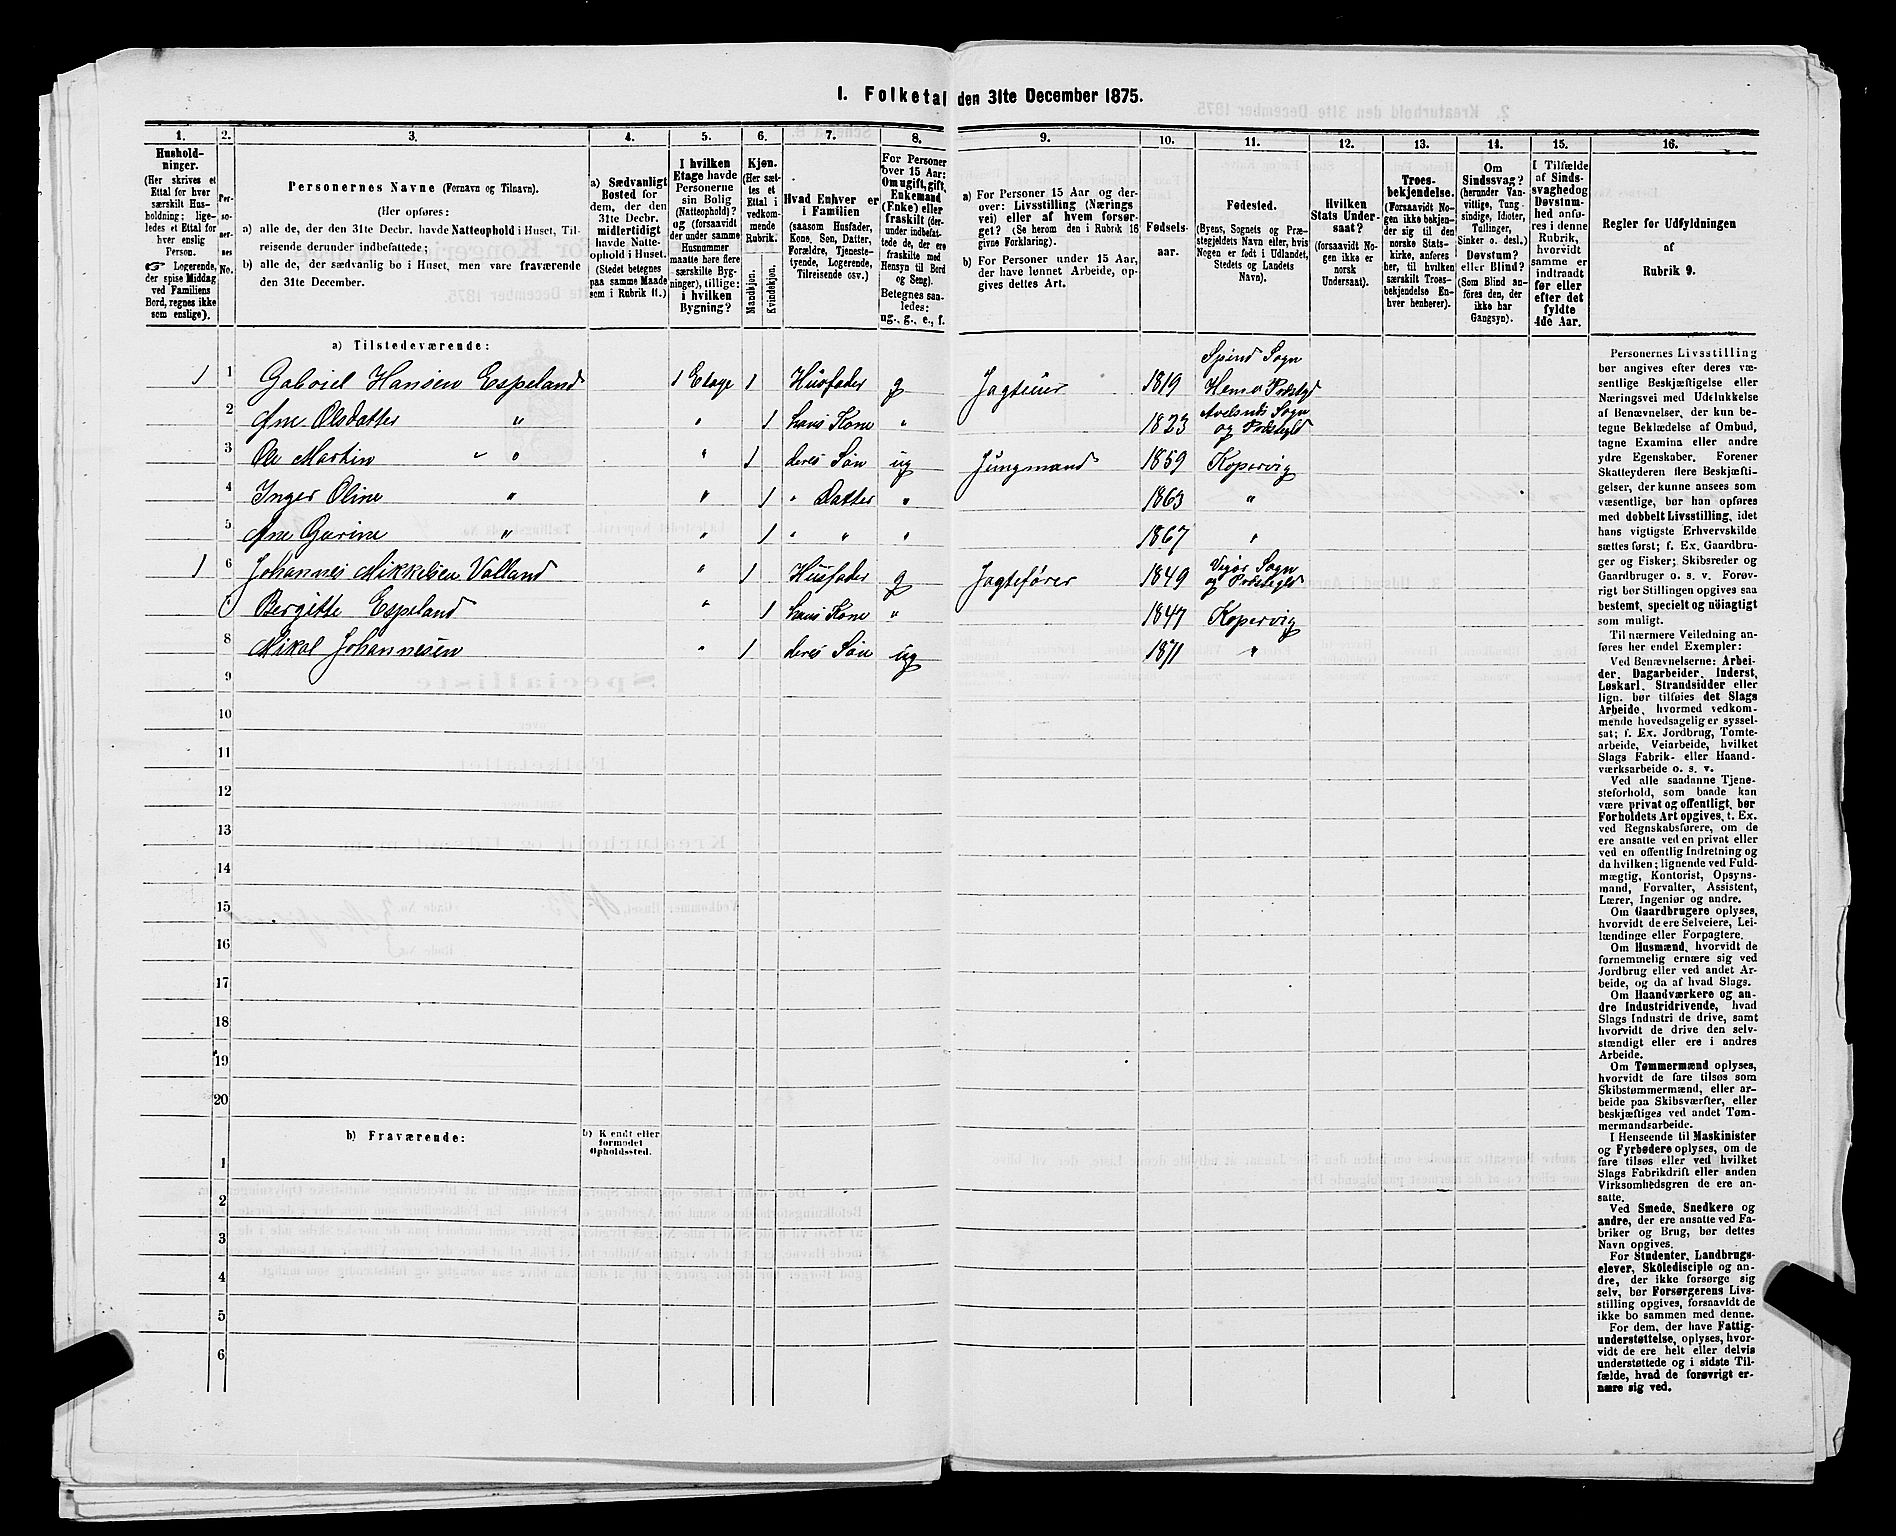 1. Folketal den 31te December 1875.
1. 2. 3. 4. 5. 6. 7. 8. 9. 10. 11. 12. 13. 14. 15. 16.
Hushold-
ninger.
(Her skrives et
Ettal for hver
særskilt Hus-
holdning; lige-
ledes et Ettal for
hver enslig
Person.
☞ Logerende,
der spise Middag
ved Familiens
Bord, regnes ikke
som enslige).
Per-
so-
ner-
nes
No.
Personernes Navne (Fornavn og Tilnavn).
(Her opføres:
a) alle de, der den 31te Decbr. havde Natteophold i Huset, Til-
reisende derunder indbefattede;
b) alle de, der sædvanlig bo i Huset, men vare fraværende
den 31te December.
a) Sædvanligt
Bosted for
dem, der den
31te Decbr.
midlertidigt
havde Natte-
ophold i Huset.
(Stedet betegnes
paa samme Maade
som i Rubrik 11.)
I hvilken
Etage havde
Personerne
sin Bolig
(Natteophold)?
og (forsaavidt
der under samme
Husnummer
maatte høre flere
særskilte Byg-
ninger), tillige:
i hvilken
Bygning?
Kjøn.
(Her sæt-
tes et
Ettal i
vedkom-
mende
Rubrik.
Mandkjøn.
Kvindekjøn.
Hvad Enhver er
i Familien
(saasom Husfader,
Kone, Søn, Datter,
Forældre, Tjeneste-
tyende, Logerende,
Tilreisende osv.)
For Personer
over 15 Aar:
Om ugift, gift,
Enkemand
(Enke) eller
fraskilt (der-
under indbefat-
tede de, der ere
fraskilte med
Hensyn til Bord
og Seng).
Betegnes saa-
ledes:
ug., g., e., f.
a) For Personer 15 Aar og der-
over: Livsstilling (Nærings
vei) eller af hvem forsør-
get? (Se herom den i Rubrik 16
givne Forklaring).
b) For Personer under 15 Aar,
der have lønnet Arbeide, op-
gives dettes Art.
Fødsels-
aar.
Fødested.
(Byens, Sognets og Præ-
stegjeldets Navn eller, hvis
Nogen er født i Udlandet,
Stedets og Landets
Navn).
Hvilken
Stats Under-
saat?
(forsaavidt No-
gen ikke er
norsk
Undersaat).
Troes-
bekjendelse.
(Forsaavidt No-
gen ikke bekjen-
der sig til den
norske Stats-
kirke, anføres
her, til hvilken
særskilt Troes-
bekjendelse En-
hver henhører).
Om
Sindssvag?
(herunder Van-
vittige, Tung-
sindige, Idioter,
Tullinger,
Sinker o. desl.)
Døvstum?
eller Blind?
(Som Blind an-
føres den, der
ikke har
Gangsyn).
I Tilfælde
af Sinds-
svaghed og
Døvstum-
hed anfø-
res i denne
Rubrik,
hvorvidt
samme er
indtraadt
før eller
efter det
fyldte
4de Aar.
Regler for Udfyldningen
af
Rubrik 9.
a) Tilstedeværende:
1 1 Gabriel Hansen Espeland 1 Etage 1 Husfader g Jagteier 1819 Spind Sogn Herrø Præstgd
2 Ane Olsdatter " " 1 hans Kone " 1823 og Præstegld
3 Ole Martin " " " 1 deres Søn ug Jungmand 1859 Kopervig
4 Inger Oline " " 1 " Datter " 1863 "
5 Ane Gurine " " 1 " " " 1867 "
1 6 Johannes Mikkelsen Valland " 1 Husfader g Jagtefører 1849 Sogn og Præstegld
Bergitte Espeland " 1 hans Kone " 1847 Kopervig
8 Mikal Johannesen " 1 deres Søn ug 1871 "
9
10
11
12
13
14
15
16
17
18
19
20
b) Fraværende:
b) Kjendt eller
formodet
Opholdssted.
1
2
3
4
5
6
Personernes Livsstilling
bør angives efter deres væ-
sentlige Beskjæftigelse eller
Næringsvei med Udelukkelse
af Benævnelser, der kun be-
tegne Beklædelse af Ombud,
tagne Examina eller andre
ydre Egenskaber. Forener
Skatteyderen flere Beskjæfti-
gelser, der kunne ansees som
væsentlige, bør han opføres
med dobbelt Livsstilling, idet
hans vigtigste Erhvervskilde
sættes først; f. Ex. Gaardbru-
ger og Fisker; Skibsreder og
Gaardbruger o. s. v. Forøv-
rigt bør Stillingen opgives saa
bestemt, specielt og nöiagtigt
som muligt.
Til nærmere Veiledning an-
føres her endel Exempler:
Ved Benævnelserne: Arbei-
der, Dagarbeider, Inderst,
Løskarl, Strandsidder eller
lign. bør tilføies det Slags
Arbeide, hvormed vedkom-
mende hovedsagelig er syssel-
sat; f. Ex. Jordbrug, Tomte-
arbeide, Veiarbeide, hvilket
Slags Fabrik- eller Haand-
værksarbeide o. s. v.
Ved alle saadanne Tjene-
steforhold, som baade kan
være privat og offentligt, bør
Forholdets Art opgives, t. Ex.
ved Regnskabsførere, om de
ere ansatte ved en privat eller
ved en offentlig Indretning og
da hvilken; lignende ved Fuld-
mægtig, Kontorist, Opsyns-
mand, Forvalter, Assistent,
Lærer, Ingeniør og andre.
Om Gaardbrugere oplyses,
hvorvidt de ere Selveiere, Lei-
lændinge eller Forpagtere.
Om Husmænd, hvorvidt de
fornemmelig ernære sig ved
Jordbrug eller ved andet Ar-
beide, og da af hvad Slags.
Om Haandværkere og an-
dre Industridrivende, hvad
Slags Industri de drive, samt
hvorvidt de drive den selv-
stændigt eller ere i andres
Arbeide.
Om Tømmermænd oplyses,
hvorvidt de fare tilsøs som
Skibstømmermænd, eller ar-
beide paa Skibsværfter, eller
beskjæftiges ved andet Tøm-
mermandsarbeide.
I Henseende til Maskinister
og Fyrbødere oplyses, om de
fare tilsøs eller ved hvilket
Slags Fabrikdrift eller anden
Virksomhedsgren de ere an-
satte.
Ved Smede, Snedkere og
andre, der ere ansatte ved Fa-
briker og Brug, bør dettes
Navn opgives.
For Studenter, Landbrugs-
elever, Skoledisciple og an-
dre, der ikke forsørge sig
selv, bør Forsørgerens Livs-
stilling opgives, forsaavidt de
ikke bo sammen med denne.
For dem, der have Fattig-
understøttelse, oplyses, hvor-
vidt de ere helt eller delvis
understøttede og i sidste Til-
fælde, hvad de forøvrigt er-
nære sig ved.